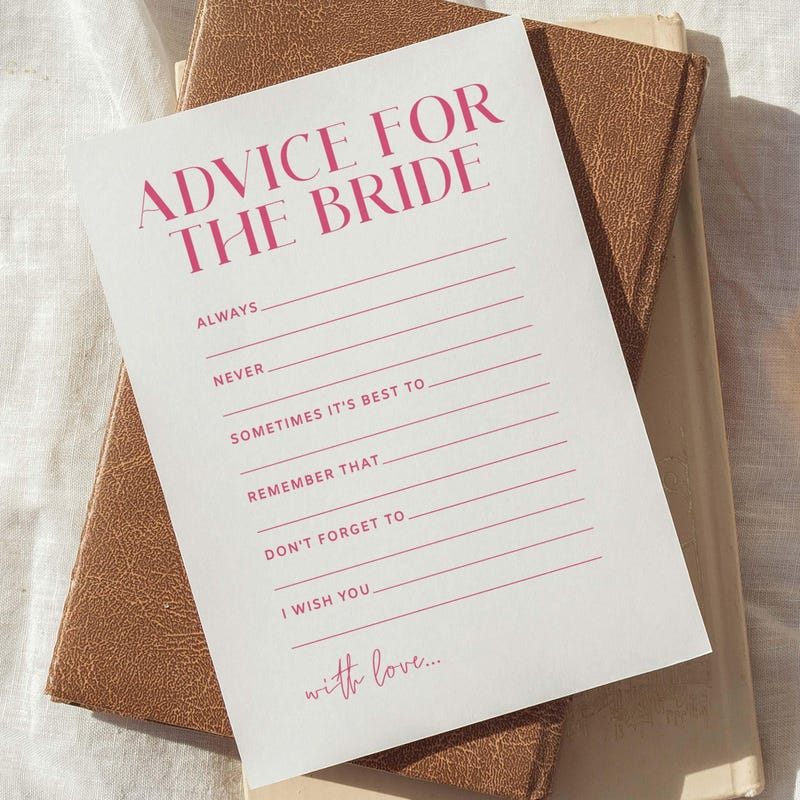 ADVICE FOR
THE BRIDE
ALWAYS
NEVER
SOMETIMES IT'S BEST TO
REMEMBER THAT
DON'T FORGET TO
I WISH YOU
with love...